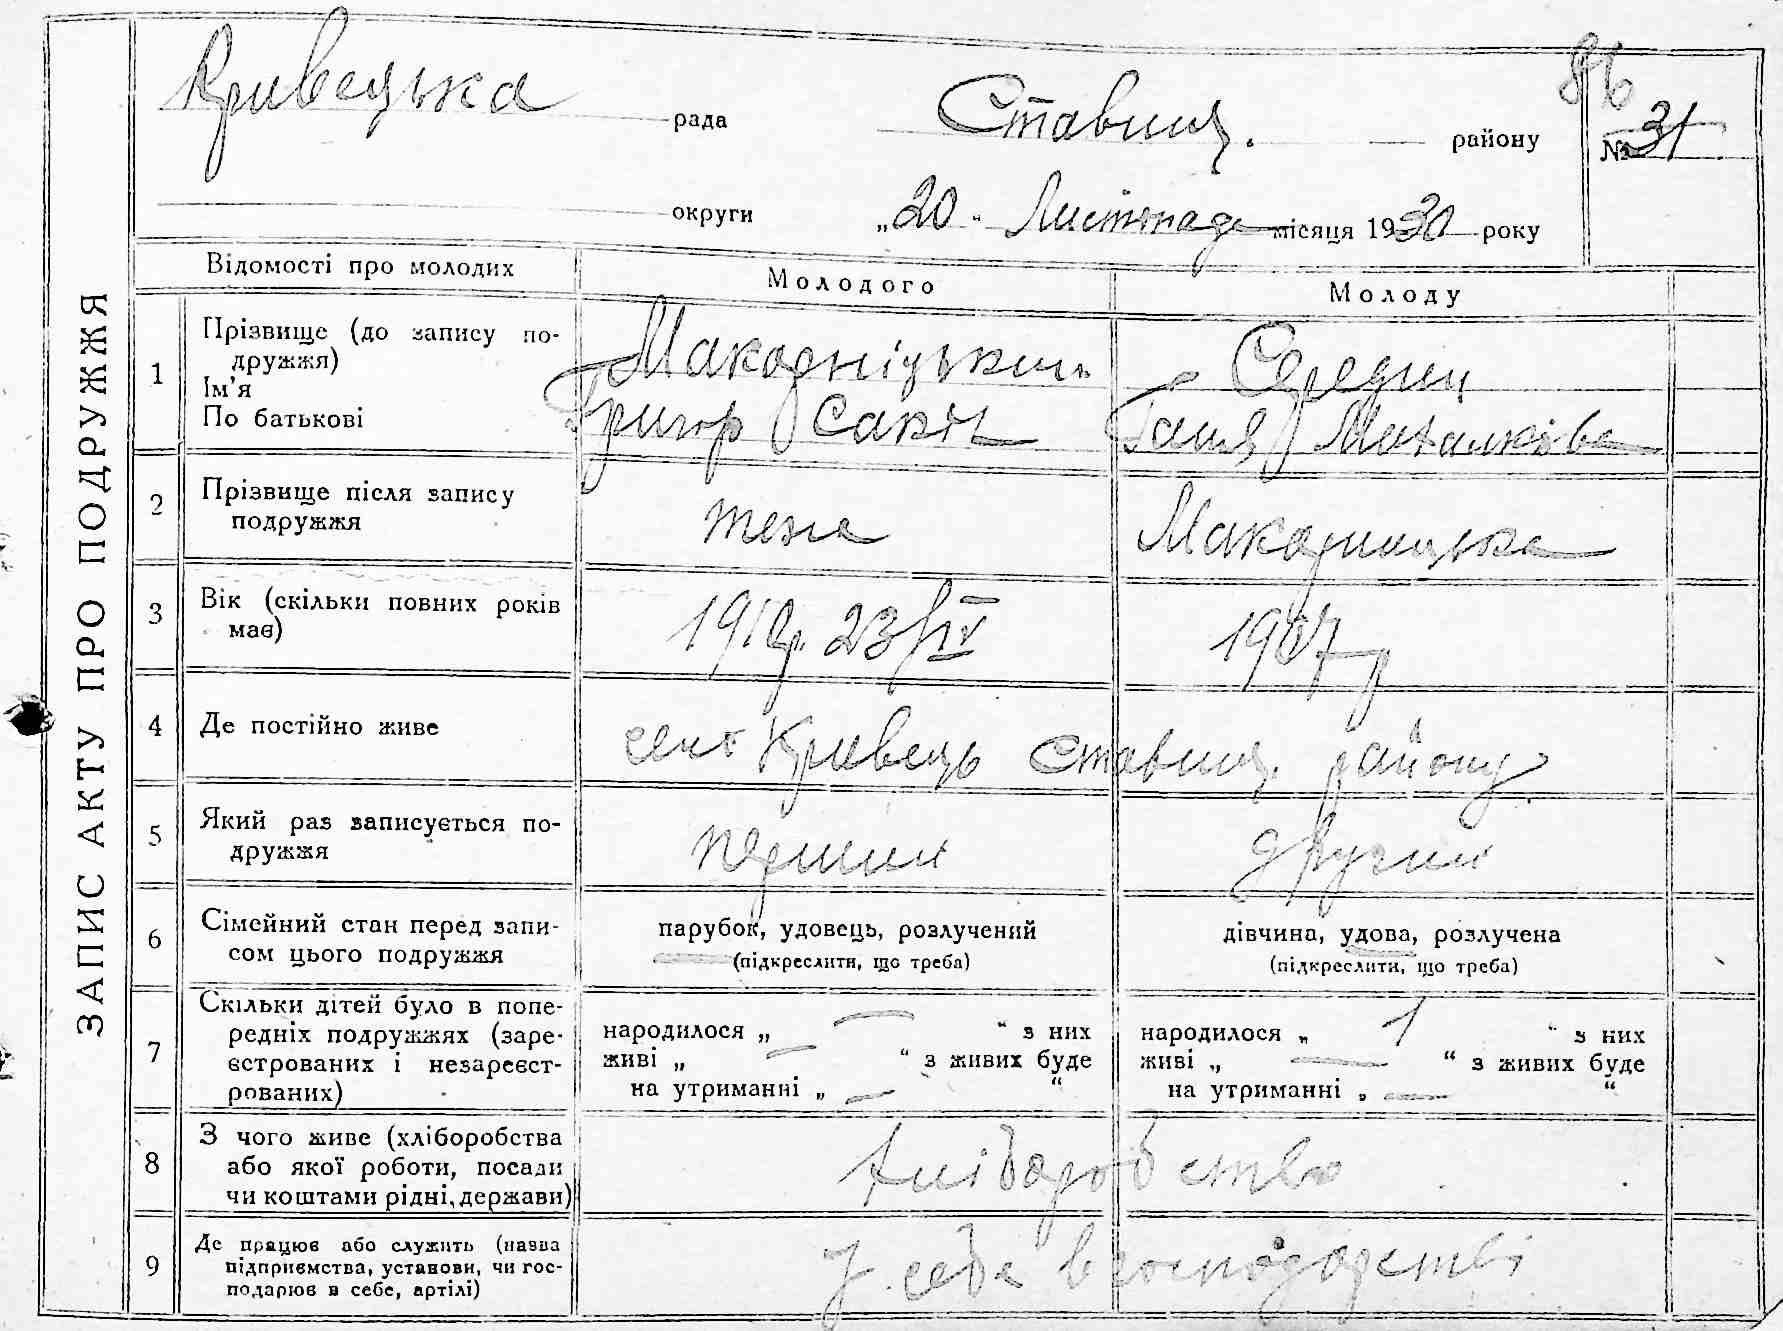 Кривецька рада Ставищ. району
86
№ 31
округи „20“ Листопада місяця 1930 року
ЗАПИС АКТУ ПРО ПОДРУЖЖЯ
Відомості про молодих Молодого Молоду
1 Прізвище (до запису по-
дружжя)
Ім’я
По батькові
Григор Сак
Ганя
2 Прізвище після запису
подружжя
теж
3 Вік (скільки повних років
має)
1910р. 23/IV 1907р
4 Де постійно живе село Кривець Ставищ. району
5 Який раз записується по-
дружжя
перший другий
6 Сімейний стан перед запи-
сом цього подружжя
парубок, удовець, розлучений
(підкреслити, що треба)
дівчина, удова, розлучена
(підкреслити, що треба)
7 Скільки дітей було в попе-
редніх подружжях (заре-
єстрованих і незареєст-
рованих)
народилося „ — “ з них
живі „ — “ з живих буде
на утриманні „ — “
народилося „ 1 “ з них
живі „ — “ з живих буде
на утриманні „ — “
8 З чого живе (хліборобства
або якої роботи, посади
чи коштами рідні, держави)
хліборобство
9 Де працює або служить (назва
підприємства, установи, чи гос-
подарює в себе, артілі)
У себе в господарстві